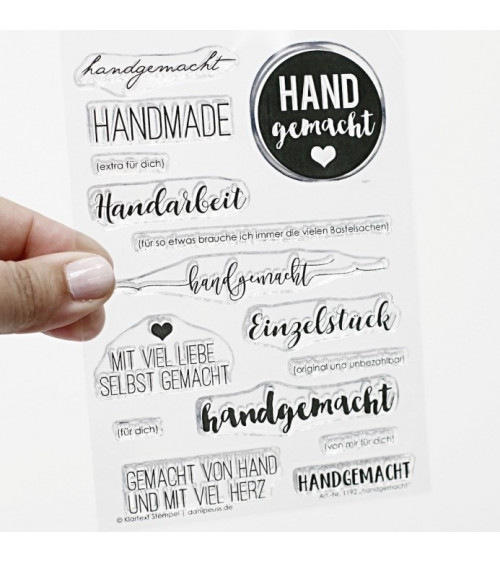 handgemacht
HAND
gemacht
HANDMADE
(extra für dich)
Handarbeit
(für so etwas brauche ich immer die vielen Bastelsachen)
handgemacht
Einzelstück
MIT VIEL LIEBE
SELBST GEMACHT
(original und unbezahlbar)
handgemacht
(für dich)
(von mir für dich)
GEMACHT VON HAND
UND MIT VIEL HERZ
HANDGEMACHT
Art.-Nr. 1192 „handgemacht“
© Klartext Stempel | danipeuss.de